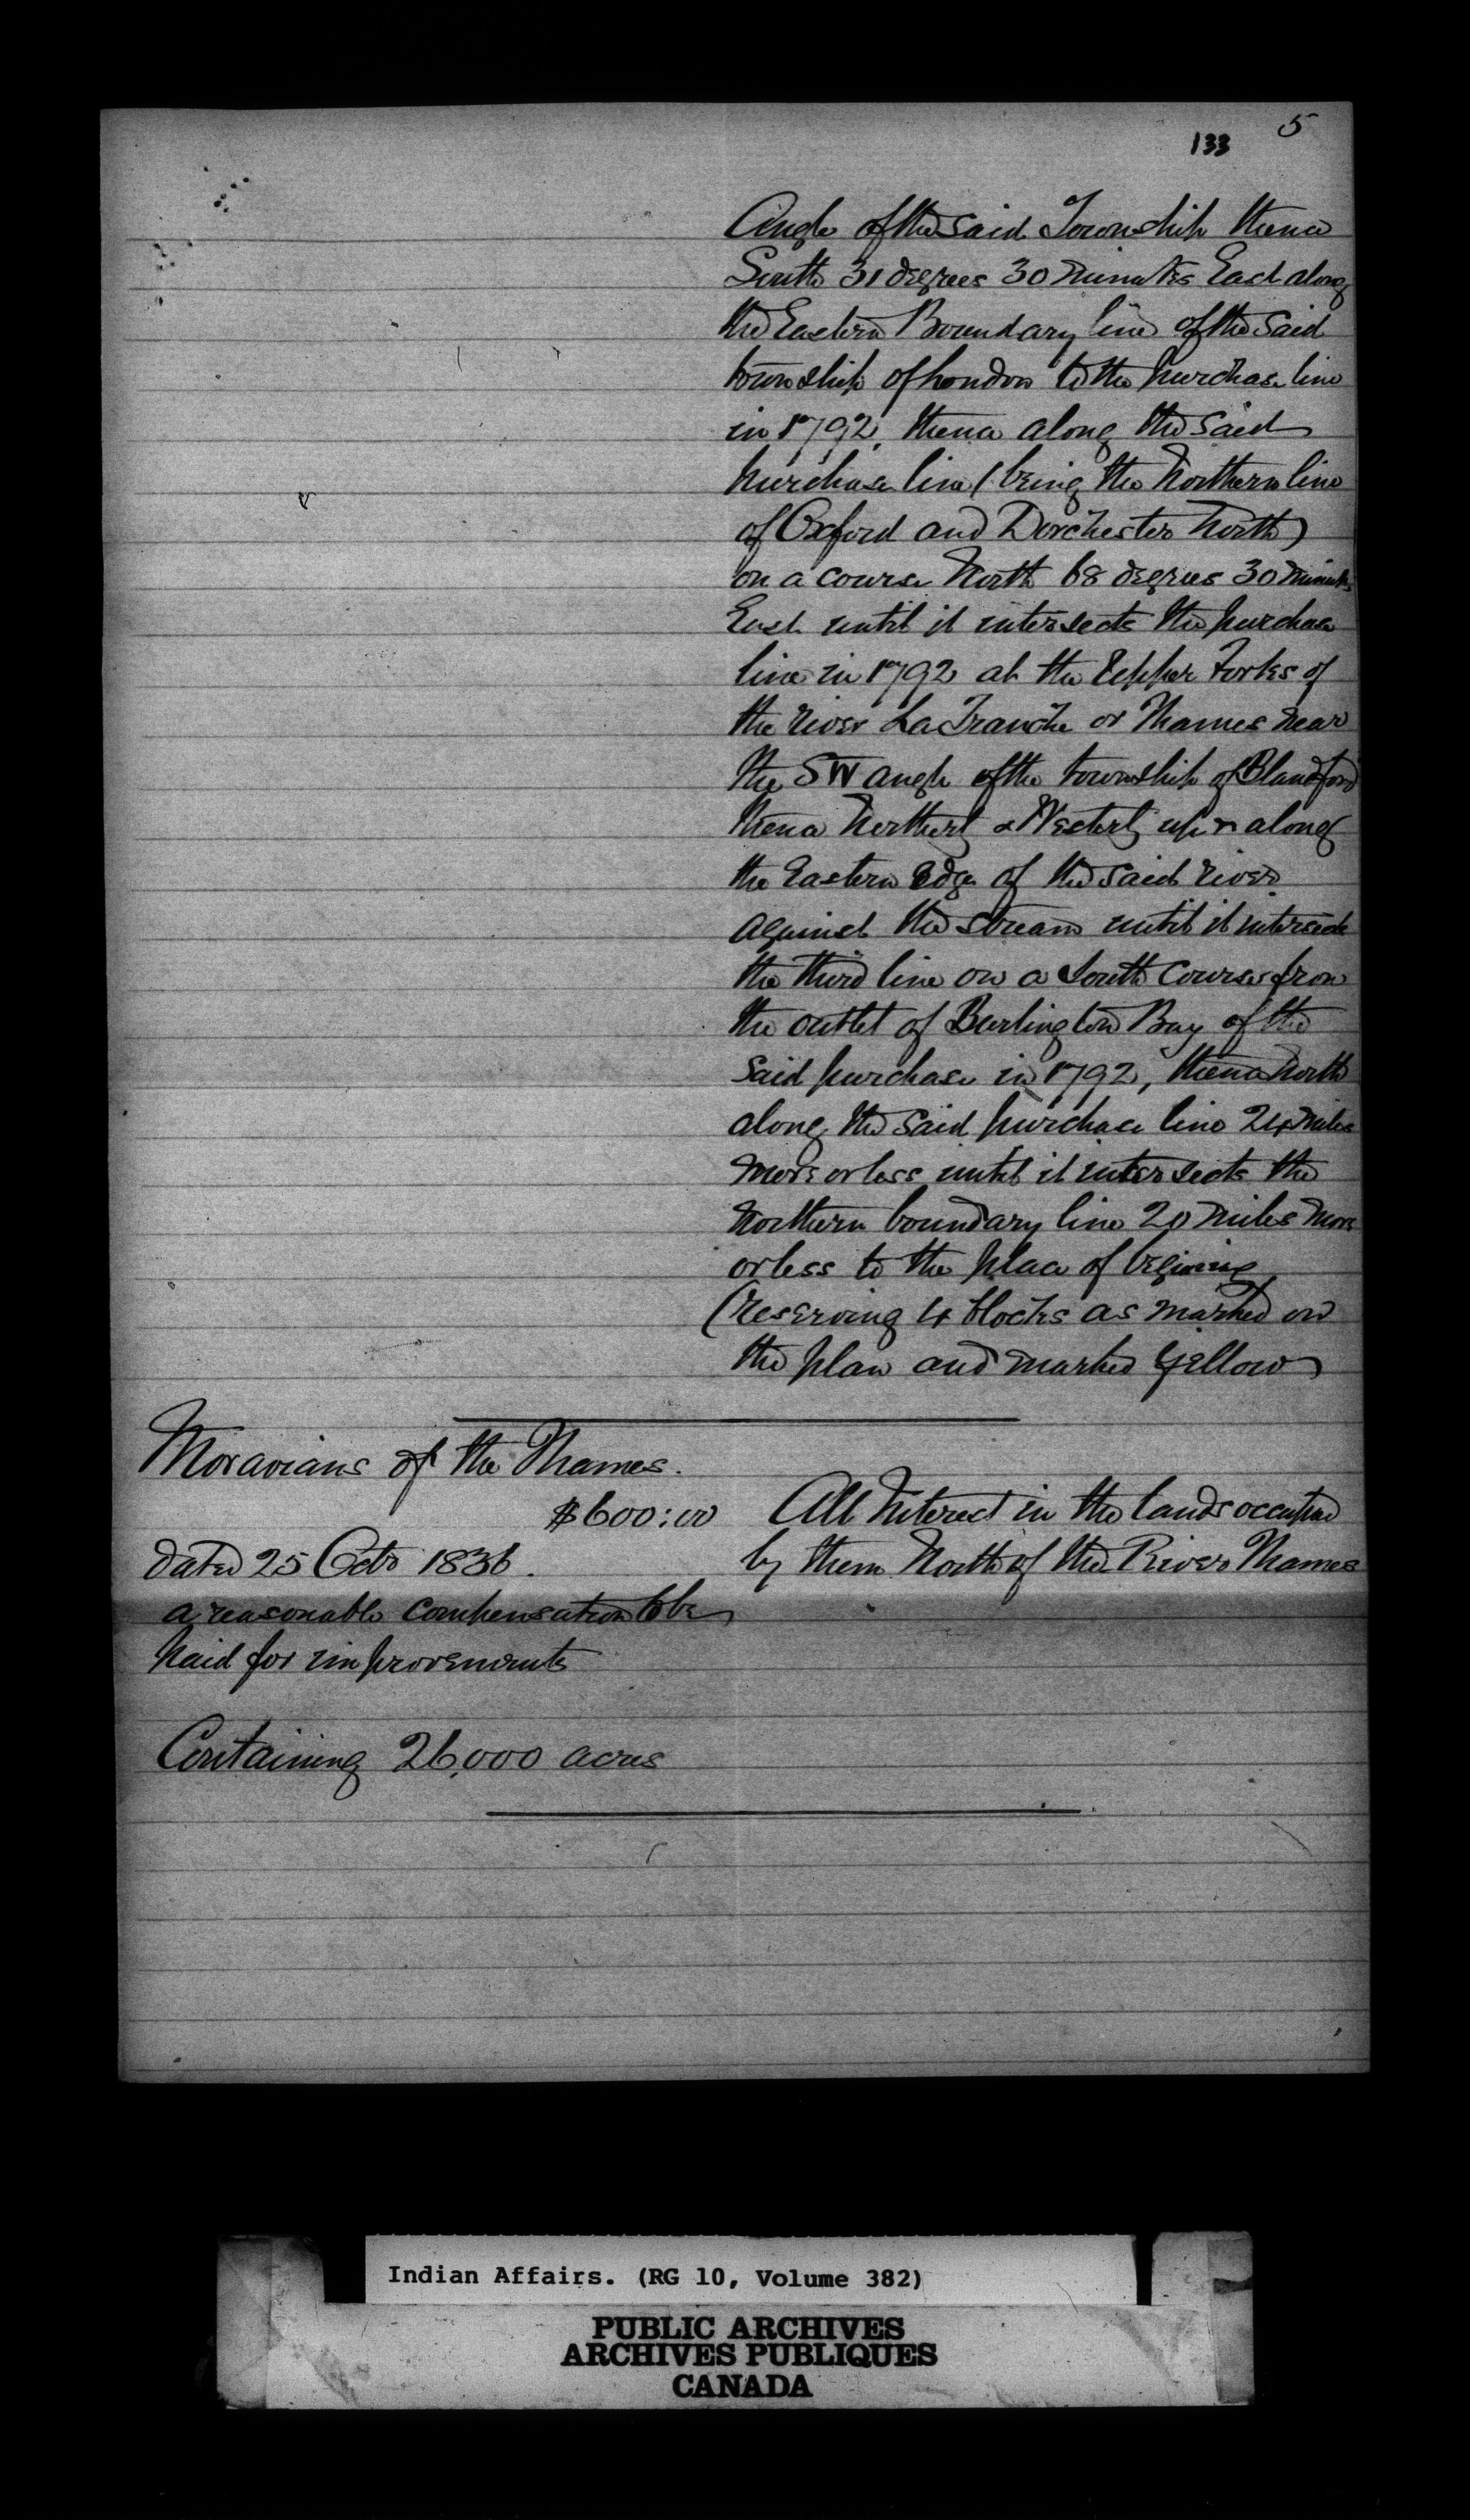 5
133
Angle of the said Township thence
South 31 degrees 30 minutes East along
the Eastern Boundary line of the said
township of London to the purchase line
in 1792, thence along the said
purchase line (being the Northern line
of Oxford and Dorchester North)
on a course North 68 degrees 30 minutes
East until it intersects the purchase
line in 1792 at the Upper Forks of
the river La Tranche or Thames near
the SW angle of the township of Blandford
thence Northerly & Westerly up & along
the Eastern Edge of the said river
against the stream until it intersects
the third line on a South Course from
the outlet of Burlington Bay of the
said purchase in 1792, thence North
along the said purchase line 24 miles
more or less until it intersects the
Northern boundary line 20 miles more
or less to the place of begining
(reserving 4 blocks as marked on
the plan and marked Yellow)
Moravians of the Thames.
$600:00 All Interest in the lands occupied
dated 25 Octr 1836. by them North of the River Thames
a reasonable compensation to be
paid for improvements
Containing 26,000 acres
Indian Affairs. (RG 10, Volume 382)
PUBLIC ARCHIVES
ARCHIVES PUBLIQUES
CANADA